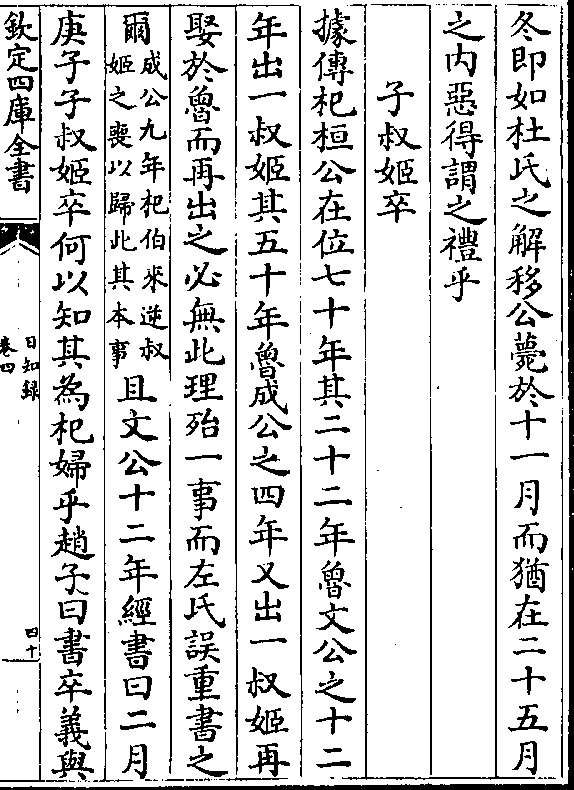 冬即如杜氏之解移公薨於十一月而猶在二十五月
之内惡得謂之禮乎
子叔姬卒
據傳杞桓公在位七十年其二十二年魯文公之十二
年出一叔姬其五十年魯成公之四年又出一叔姬再
娶於魯而再出之必無此理殆一事而左氏誤重書之
爾成公九年杞伯來逆叔
姬之喪以歸此其本事且文公十二年經書曰二月
庚子子叔姬卒何以知其為杞婦乎趙子曰書卒義與
欽定四庫全書
日知錄
卷四
四十